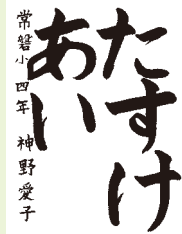 たすけ
あい
常磐小四年 神野愛子